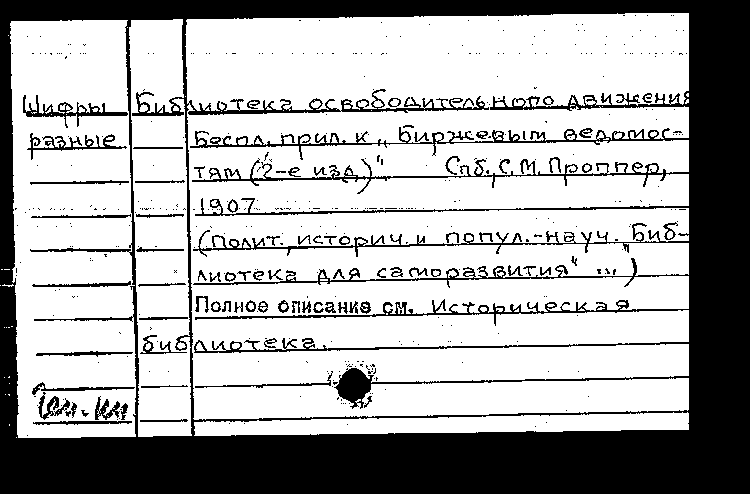 Шифры Библиотека освободительного движения
разные Беспл. прил. к „Биржевым ведомос-
тям (2-е изд.)". Спб., С.М. Проппер,
1907
(Полит., историч. и попул.-науч. „Биб-
лиотека для саморазвития" ...)
Полное описание см. Историческая
библиотека.